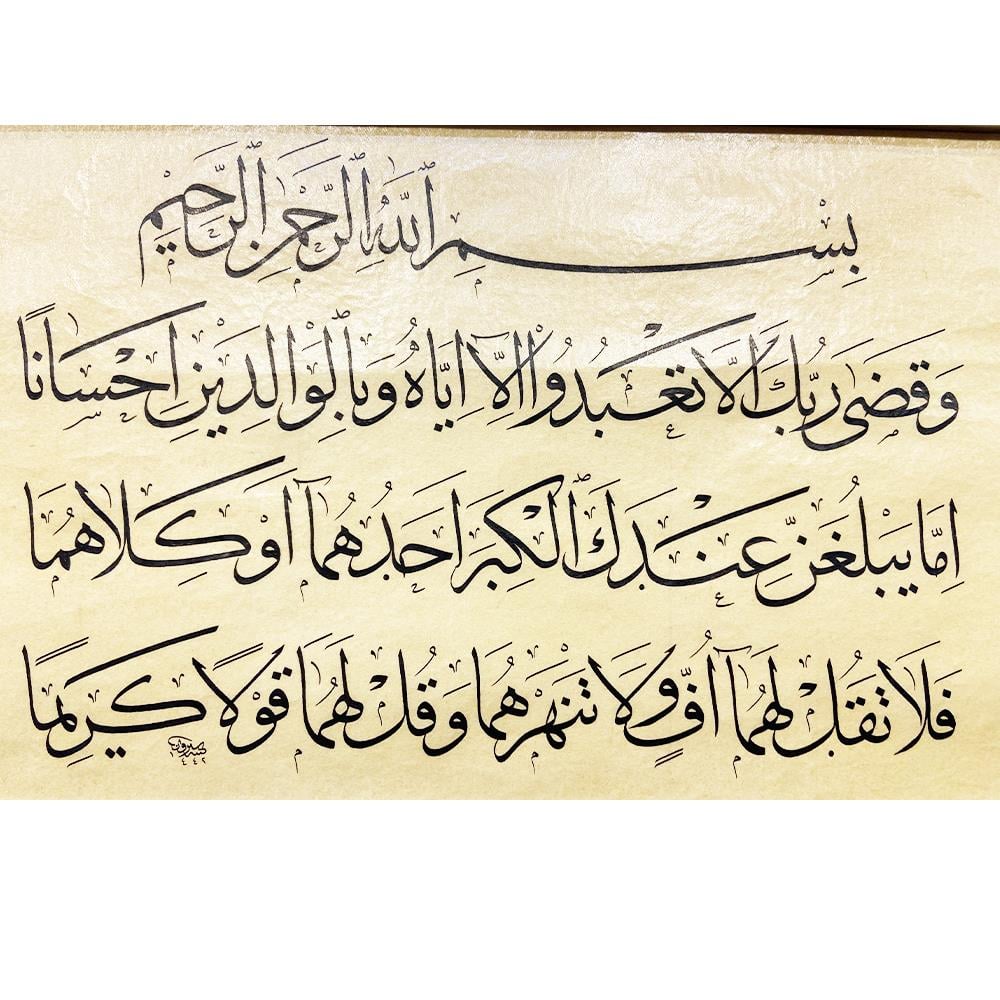 بِسْمِ ٱللَّهِ ٱلرَّحْمٰنِ ٱلرَّحِيمِ
وَقَضَى رَبُّكَ اَلَّا تَعْبُدُوا اِلَّآ اِيَّاهُ وَبِالْوَالِدَيْنِ اِحْسَانًا
اِمَّا يَبْلُغَنَّ عِنْدَكَ الْكِبَرَ اَحَدُهُمَآ اَوْ كِلَاهُمَا
فَلَا تَقُلْ لَهُمَآ اُفٍّ وَلَا تَنْهَرْهُمَا وَقُلْ لَهُمَا قَوْلًا كَرِيمًا
١٤٤٢